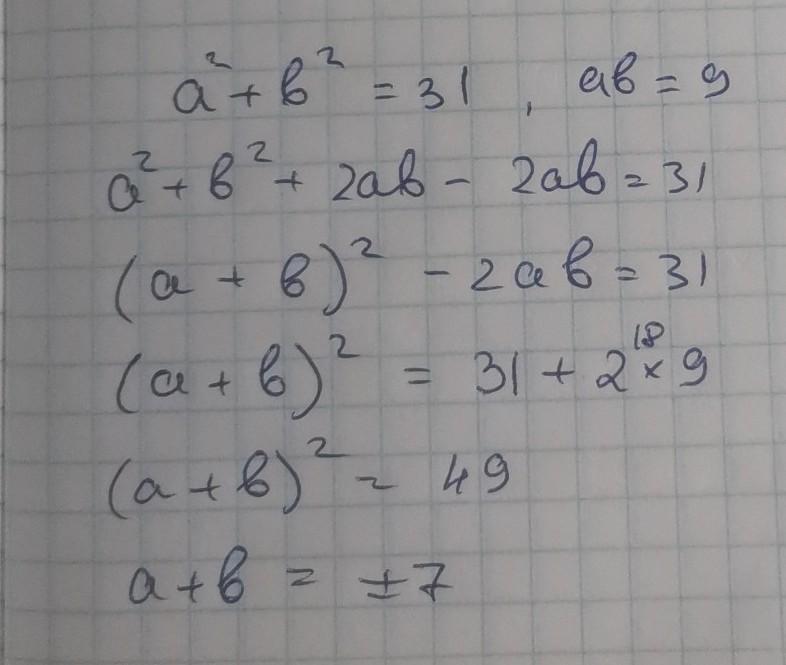 a² + b² = 31 , ab = 9
a² + b² + 2ab - 2ab = 31
(a + b)² - 2ab = 31
(a + b)² = 31 + 2 × 9 18
(a + b)² = 49
a + b = ±7